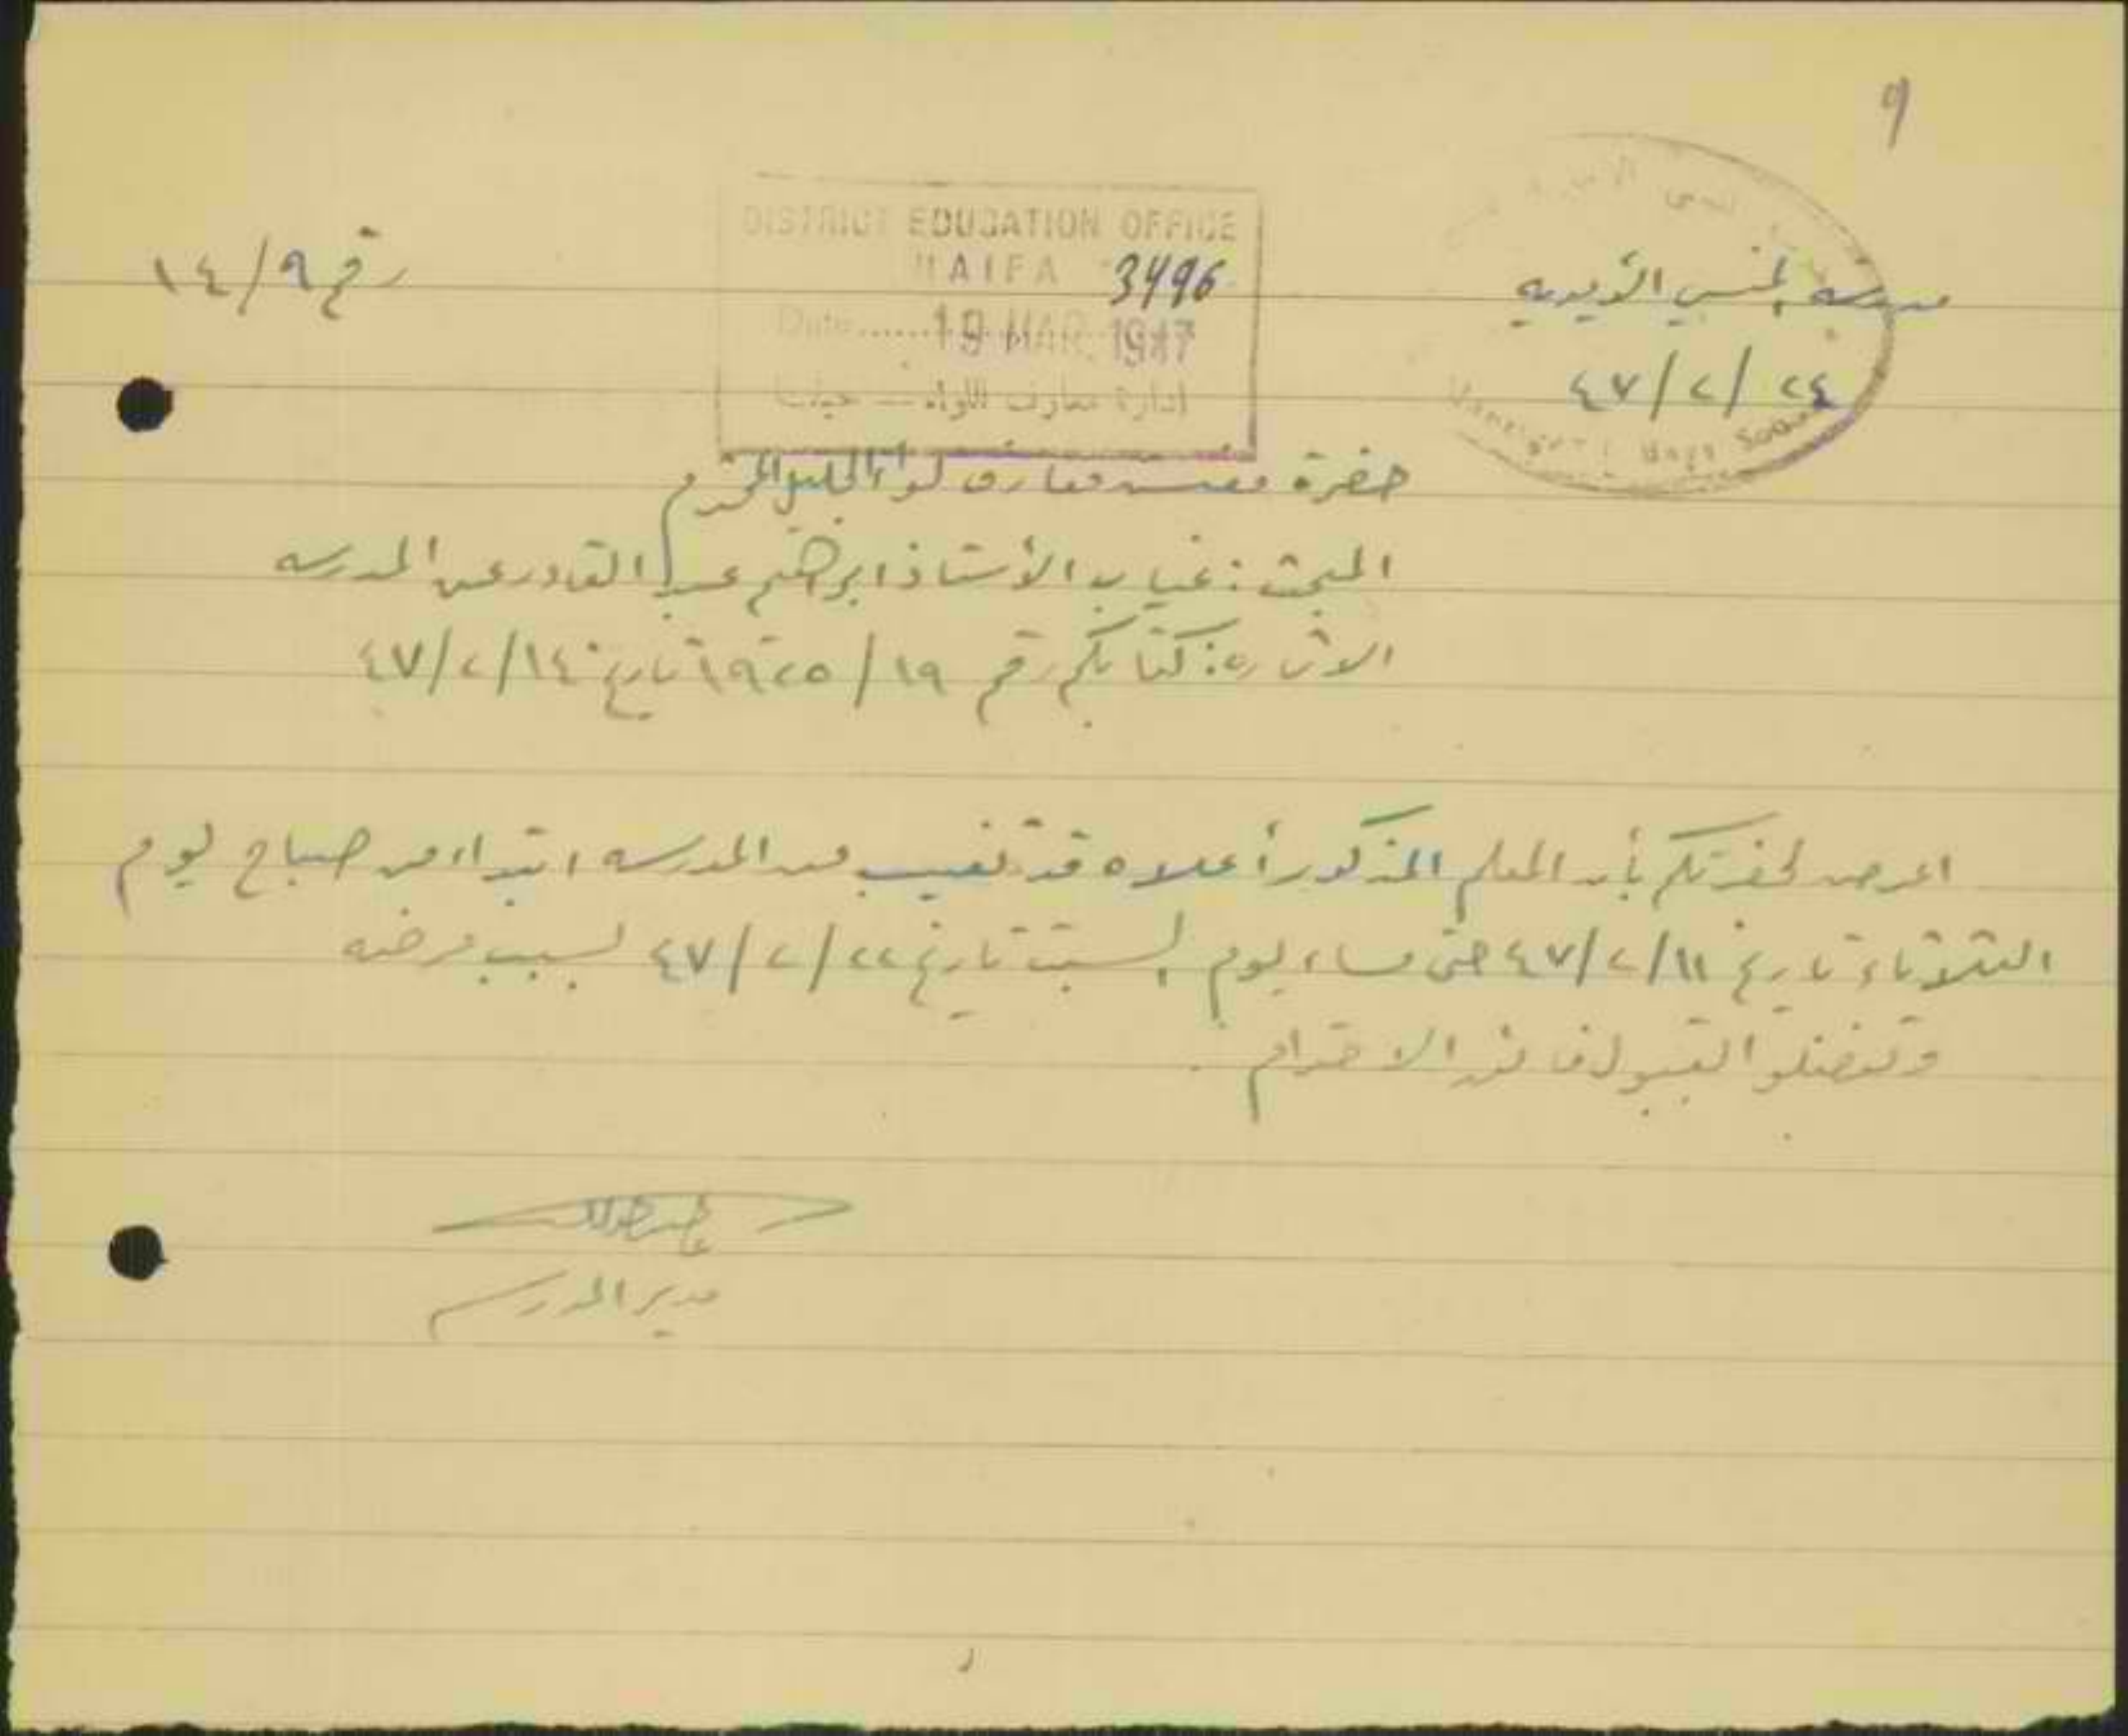 9
مدرسة المنسي الأميرية
رقم ١٤/٩
٤٧/٢/٢٤
DISTRICT EDUCATION OFFICE
HAIFA 3496
Date ...... 19 MAR. 1947
ادارة معارف اللواء – حيفا
حضرة مفتش معارف لواء الجليل المحترم
المبحث : غياب الأستاذ ابراهيم عبد القادر عن المدرسه
الاشاره : كتابكم رقم ١٩/١٩٢٥ تاريخ ٤٧/٢/١٤
اعرض لحضرتكم بأن المعلم المذكور أعلاه قد تغيب عن المدرسه ابتداء من صباح يوم
الثلاثاء تاريخ ٤٧/٢/١١ حتى مساء يوم السبت تاريخ ٤٧/٢/٢٢ بسبب مرضه
وتفضلوا بقبول فائق الاحترام .
مدير المدرسه